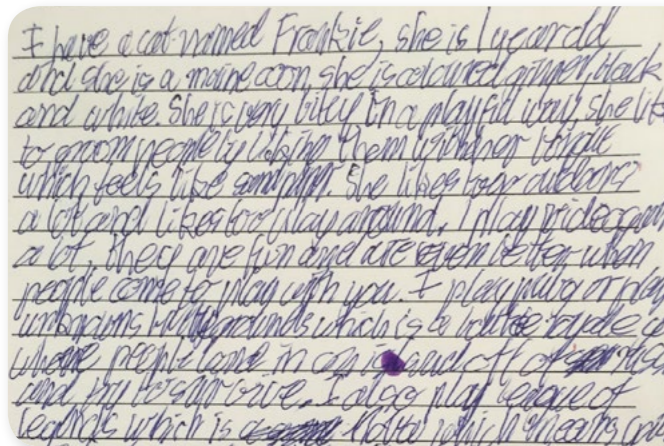 I have a cat named Frankie, she is 1 year old
and she is a maine coon, she is coloured ginger, black
and white. She is very bitey in a playful way, she lik
to groom people by licking them with her tongue
which feels like She likes outdoors
a lot and likes to play around. I play videogam
a lot, they are fun and are even better when
people come to play with you. I play
which is a battle royale
where people land in an island
and try to survive. I also play league of
legends which is a which means